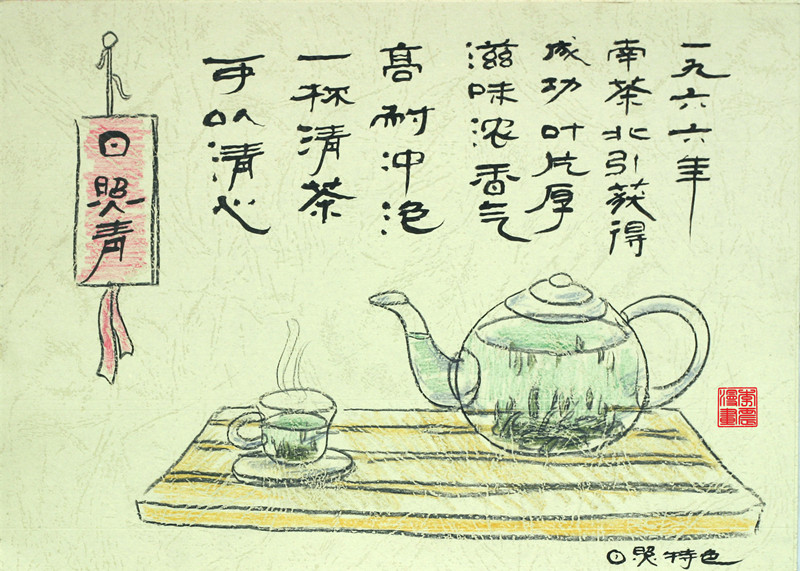 一九六六年
南茶北引获得
成功叶片厚
滋味浓香气
高耐冲泡
一杯清茶
可以清心
日照青
李震漫画
日照特色